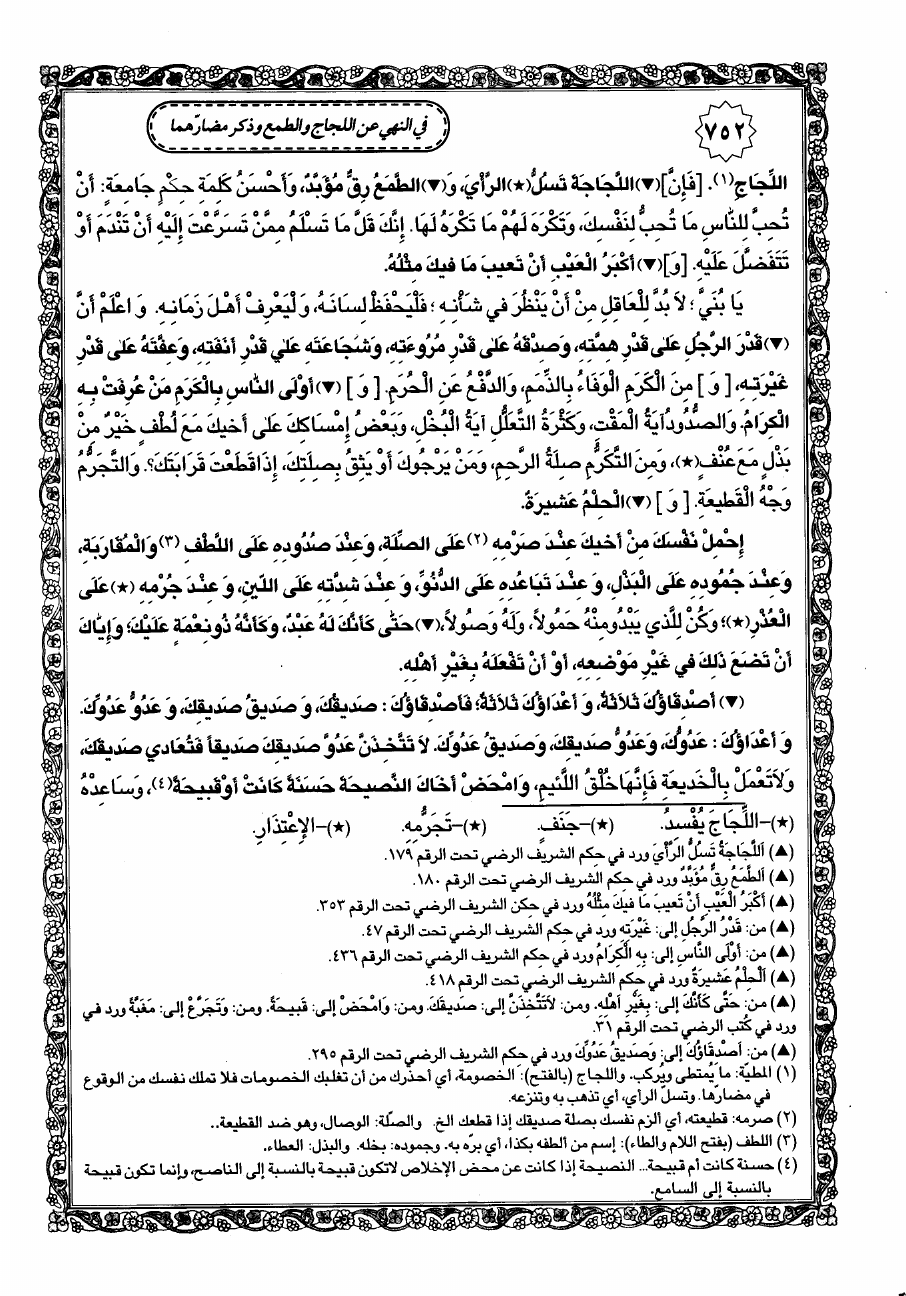 ٧٥٢
في النهي عن اللجاج والطمع وذكر مضارّهما
اللِّجَاجِ(١). [فَإِنَّ](▼) اللَّجَاجَةَ تَسُلُّ(★) الرَّأْيَ، وَ(▼) الطَّمَعُ رِقٌّ مُؤَبَّدٌ، وَأَحْسَنُ كَلِمَةِ حِكْمٍ جَامِعَةٍ: أَنْ
تُحِبَّ لِلنَّاسِ مَا تُحِبُّ لِنَفْسِكَ، وَتَكْرَهَ لَهُمْ مَا تَكْرَهُ لَهَا. إِنَّكَ قَلَّ مَا تَسْلَمُ مِمَّنْ تَسَرَّعْتَ إِلَيْهِ أَنْ تَنْدَمَ أَوْ
تَتَفَضَّلَ عَلَيْهِ. [وَ](▼) أَكْبَرُ الْعَيْبِ أَنْ تَعِيبَ مَا فِيكَ مِثْلُهُ.
يَا بُنَيَّ؛ لاَ بُدَّ لِلْعَاقِلِ مِنْ أَنْ يَنْظُرَ في شَأْنِهِ؛ فَلْيَحْفَظْ لِسَانَهُ، وَلْيَعْرِفْ أَهْلَ زَمَانِهِ. وَ اعْلَمْ أَنَّ
(▼) قَدْرَ الرَّجُلِ عَلىٰ قَدْرِ هِمَّتِهِ، وَصِدْقَهُ عَلىٰ قَدْرِ مُرُوءَتِهِ، وَشَجَاعَتَهُ عَلىٰ قَدْرِ أَنَفَتِهِ، وَعِفَّتَهُ عَلىٰ قَدْرِ
غَيْرَتِهِ، [ وَ ] مِنَ الْكَرَمِ الْوَفَاءُ بِالذِّمَمِ، وَالدَّفْعُ عَنِ الْحُرَمِ. [ وَ ] (▼) أَوْلَى النَّاسِ بِالْكَرَمِ مَنْ عُرِفَتْ بِهِ
الْكِرَامُ. وَالصُّدُودُ آيَةُ الْمَقْتِ، وَكَثْرَةُ التَّعَلُّلِ آيَةُ الْبُخْلِ، وَبَعْضُ إِمْسَاكِكَ عَلىٰ أَخيكَ مَعَ لُطْفٍ خَيْرٌ مِنْ
بَذْلٍ مَعَ عُنْفٍ(★)، وَمِنَ التَّكَرُّمِ صِلَةُ الرَّحِمِ، وَمَنْ يَرْجُوكَ أَوْ يَثِقُ بِصِلَتِكَ، إِذَا قَطَعْتَ قَرَابَتَكَ؟. وَالتَّجَرُّمُ
وَجْهُ الْقَطِيعَةِ. [ وَ ] (▼) الْحِلْمُ عَشِيرَةٌ.
إِحْمِلْ نَفْسَكَ مِنْ أَخيكَ عِنْدَ صَرْمِهِ (٢) عَلَى الصِّلَةِ، وَعِنْدَ صُدُودِهِ عَلَى اللَّطَفِ (٣) وَالْمُقَارَبَةِ،
وَعِنْدَ جُمُودِهِ عَلَى الْبَذْلِ، وَ عِنْدَ تَبَاعُدِهِ عَلَى الدُّنُوِّ، وَ عِنْدَ شِدَّتِهِ عَلَى اللّينِ، وَ عِنْدَ جُرْمِهِ (★) عَلَى
الْعُذْرِ(★)؛ وَكُنْ لِلَّذي يَبْدُو مِنْهُ حَمُولاً، وَلَهُ وَصُولاً، (▼) حَتّىٰ كَأَنَّكَ لَهُ عَبْدٌ، وَكَأَنَّهُ ذُو نِعْمَةٍ عَلَيْكَ؛ وَإِيَّاكَ
أَنْ تَضَعَ ذَلِكَ في غَيْرِ مَوْضِعِهِ، أَوْ أَنْ تَفْعَلَهُ بِغَيْرِ أَهْلِهِ.
(▼) أَصْدِقَاؤُكَ ثَلاَثَةٌ، وَ أَعْدَاؤُكَ ثَلاَثَةٌ؛ فَأَصْدِقَاؤُكَ: صَديقُكَ، وَ صَديقُ صَديقِكَ، وَ عَدُوُّ عَدُوِّكَ.
وَ أَعْدَاؤُكَ: عَدُوُّكَ، وَعَدُوُّ صَديقِكَ، وَصَديقُ عَدُوِّكَ. لاَ تَتَّخِذَنَّ عَدُوَّ صَديقِكَ صَديقاً فَتُعَادي صَديقَكَ،
وَلاَ تَعْمَلْ بِالْخَديعَةِ فَإِنَّهَا خُلُقُ اللَّئيمِ، وَامْحَضْ أَخَاكَ النَّصيحَةَ حَسَنَةً كَانَتْ أَوْ قَبيحَةً(٤)، وَسَاعِدْهُ
(★)-اللِّجَاجَ يُفْسِدُ. (★)-جَنَفٍ. (★)-تَجَرُّمِهِ. (★)-الإِعْتِذَارِ.
(▲) اَللَّجَاجَةُ تَسُلُّ الرَّأْيَ ورد في حكم الشريف الرضي تحت الرقم ١٧٩.
(▲) اَلطَّمَعُ رِقٌّ مُؤَبَّدٌ ورد في حكم الشريف الرضي تحت الرقم ١٨٠.
(▲) أَكْبَرُ الْعَيْبِ أَنْ تَعِيبَ مَا فيكَ مِثْلُهُ ورد في حكن الشريف الرضي تحت الرقم ٣٥٣.
(▲) من: قَدْرُ الرَّجُلِ إلى: غَيْرَتِهِ ورد في حكم الشريف الرضي تحت الرقم ٤٧.
(▲) من: أَوْلَى النَّاسِ إلى: بِهِ الْكِرَامُ ورد في حكم الشريف الرضي تحت الرقم ٤٣٦.
(▲) اَلْحِلْمُ عَشيرَةٌ ورد في حكم الشريف الرضي تحت الرقم ٤١٨.
(▲) من: حَتّىٰ كَأَنَّكَ إلى: بِغَيْرِ أَهْلِهِ. ومن: لاَتَتَّخِذَنَّ إلى: صَديقَكَ. ومن: وَامْحَضْ إلى: قَبيحَةً. ومن: وَتَجَرَّعْ إلى: مَغَبَّةً ورد في
ورد في كُتب الرضي تحت الرقم ٣١.
(▲) من: أَصْدِقَاؤُكَ إلى: وَصَديقُ عَدُوِّكَ ورد في حكم الشريف الرضي تحت الرقم ٢٩٥.
(١) المطيّة: ما يُمتطى ويُركب. واللجاج (بالفتح): الخصومة، أي أحذرك من أن تغلبك الخصومات فلا تملك نفسك من الوقوع
في مضارّها. وتسلّ الرأي، أي تذهب به وتنزعه.
(٢) صرمه: قطيعته، أي ألزم نفسك بصلة صديقك إذا قطعك الخ. والصلّة: الوصال، وهو ضد القطيعة..
(٣) اللطف (بفتح اللام والطاء): إسم من ألطفه بكذا، أي برّه به. وجموده: بخله. والبذل: العطاء.
(٤) حسنة كانت أم قبيحة... النصيحة إذا كانت عن محض الإخلاص لاتكون قبيحة بالنسبة إلى الناصح، وإنما تكون قبيحة
بالنسبة إلى السامع.